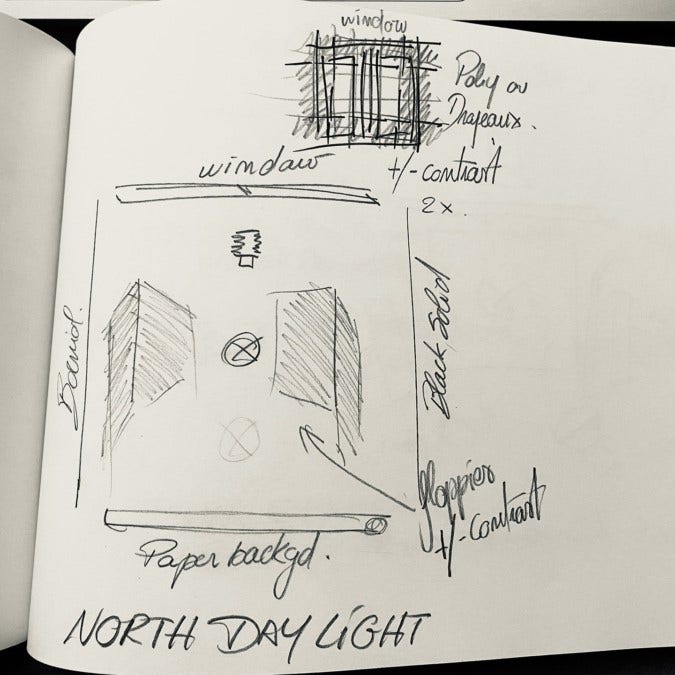 window
Poly ou
Drapeaux.
+/- contrast
2x.
window
Black Solid
floppies
+/- contrast
Paper backgd.
NORTH DAY LIGHT